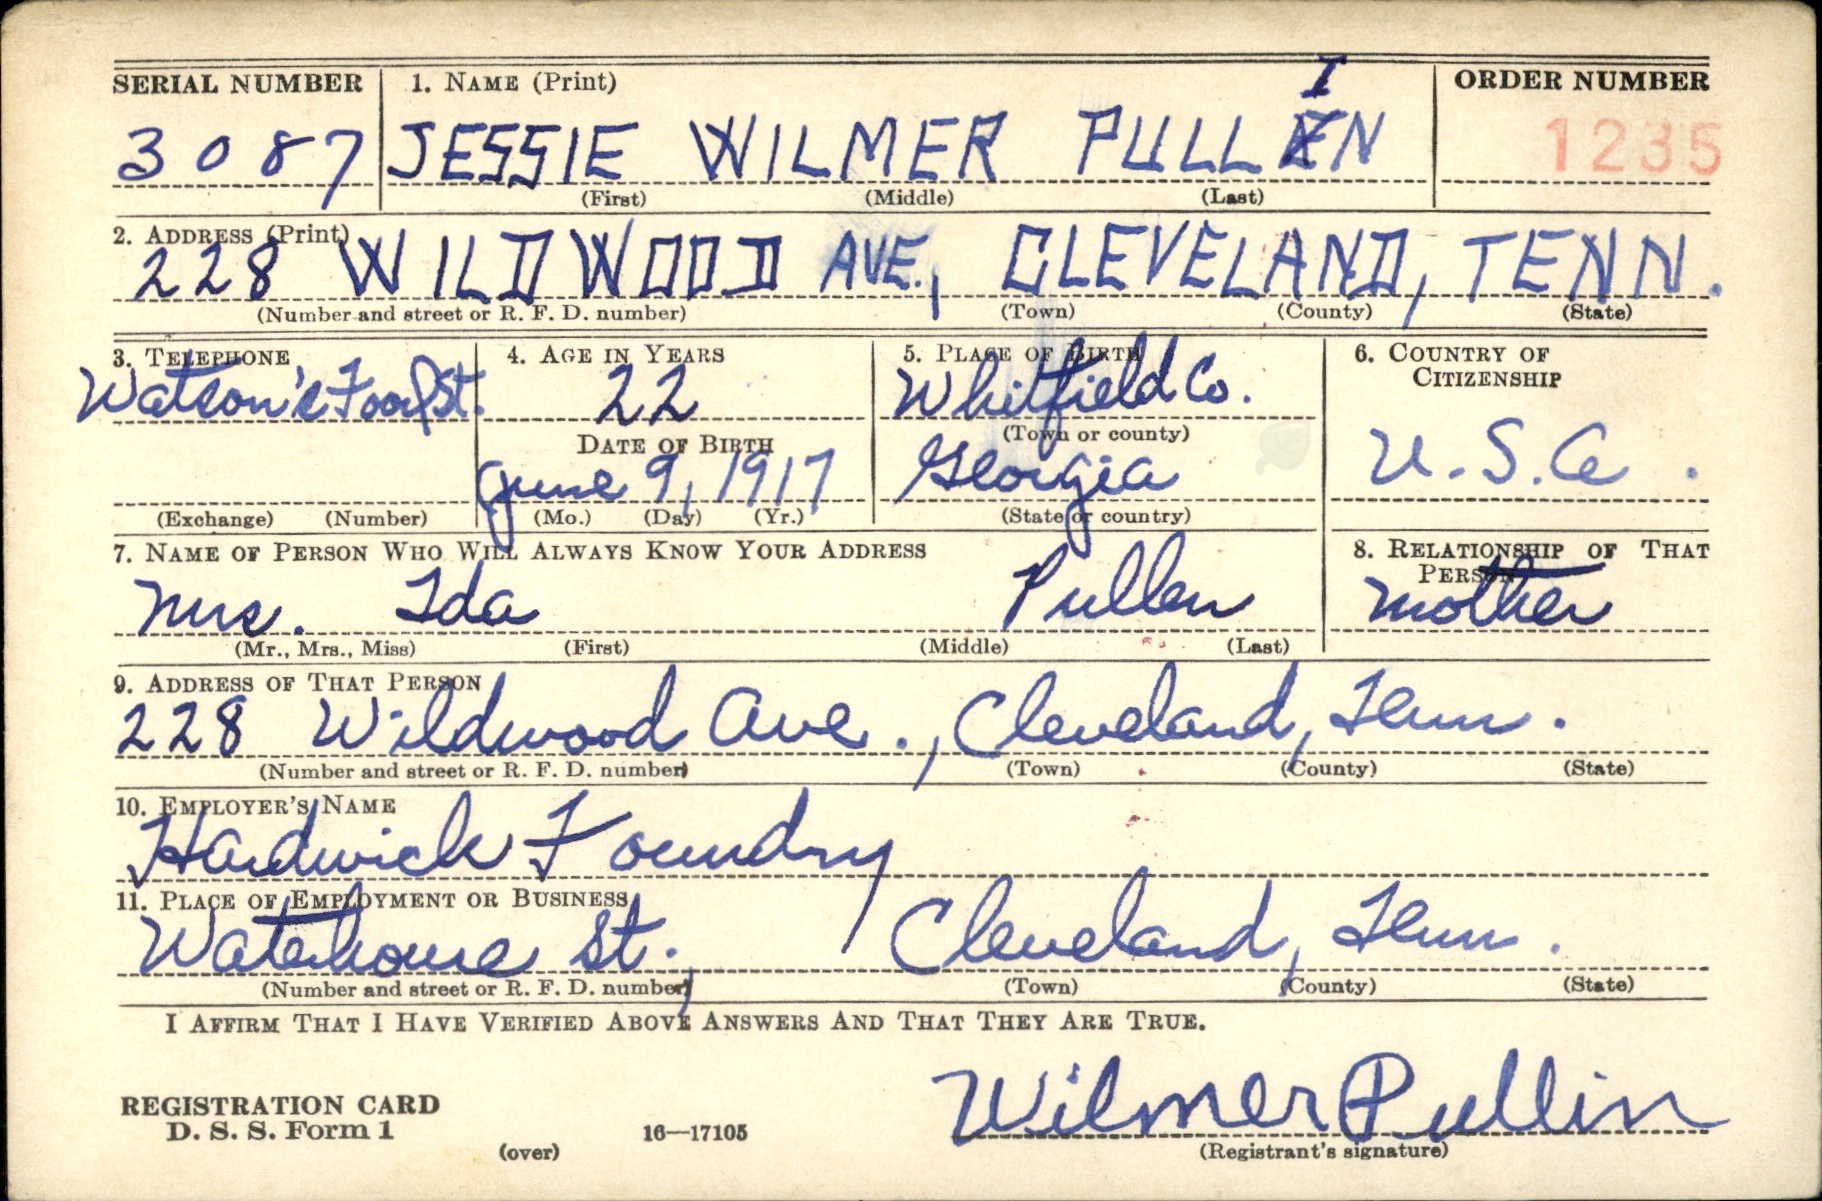 SERIAL NUMBER 1. NAME (Print) ORDER NUMBER
I
3087 JESSIE WILMER PULLEN 1235
(First) (Middle) (Last)
2. ADDRESS (Print)
228 WILDWOOD AVE., CLEVELAND, TENN.
(Number and street or R. F. D. number) (Town) (County) (State)
3. TELEPHONE 4. AGE IN YEARS 5. PLACE OF BIRTH 6. COUNTRY OF CITIZENSHIP
Watson's Food St. 22 Whitfield Co.
DATE OF BIRTH (Town or county)
June 9, 1917 Georgia U.S.A.
(Exchange) (Number) (Mo.) (Day) (Yr.) (State or country)
7. NAME OF PERSON WHO WILL ALWAYS KNOW YOUR ADDRESS 8. RELATIONSHIP OF THAT PERSON
Mrs. Ida Pullen Mother
(Mr., Mrs., Miss) (First) (Middle) (Last)
9. ADDRESS OF THAT PERSON
228 Wildwood Ave., Cleveland, Tenn.
(Number and street or R. F. D. number) (Town) (County) (State)
10. EMPLOYER'S NAME
Hardwick Foundry
11. PLACE OF EMPLOYMENT OR BUSINESS
Waterhouse St., Cleveland, Tenn.
(Number and street or R. F. D. number) (Town) (County) (State)
I AFFIRM THAT I HAVE VERIFIED ABOVE ANSWERS AND THAT THEY ARE TRUE.
Wilmer Pullin
REGISTRATION CARD
D. S. S. Form 1 16—17105
(over) (Registrant's signature)